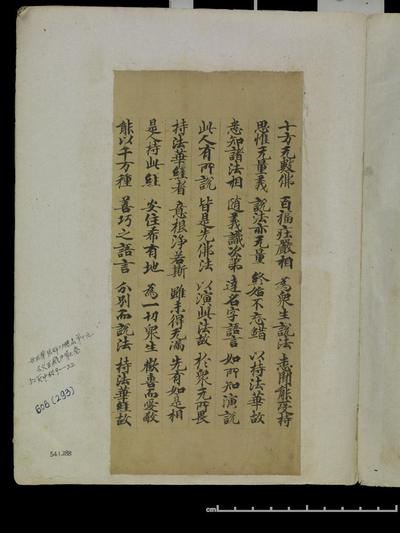 十方无數佛 百福莊嚴相 為衆生說法 悉聞能受持
思惟无量義 說法亦无量 終始不忘錯 以持法華故
悉知諸法相 隨義識次第 達名字語言 如所知演說
此人有所說 皆是先佛法 以演此法故 於衆无所畏
持法華經者 意根淨若斯 雖未得无漏 先有如是相
是人持此經 安住希有地 為一切衆生 歡喜而愛敬
能以千万種 善巧之語言 分別而說法 持法華經故
608 (293)
54.1.288
cm